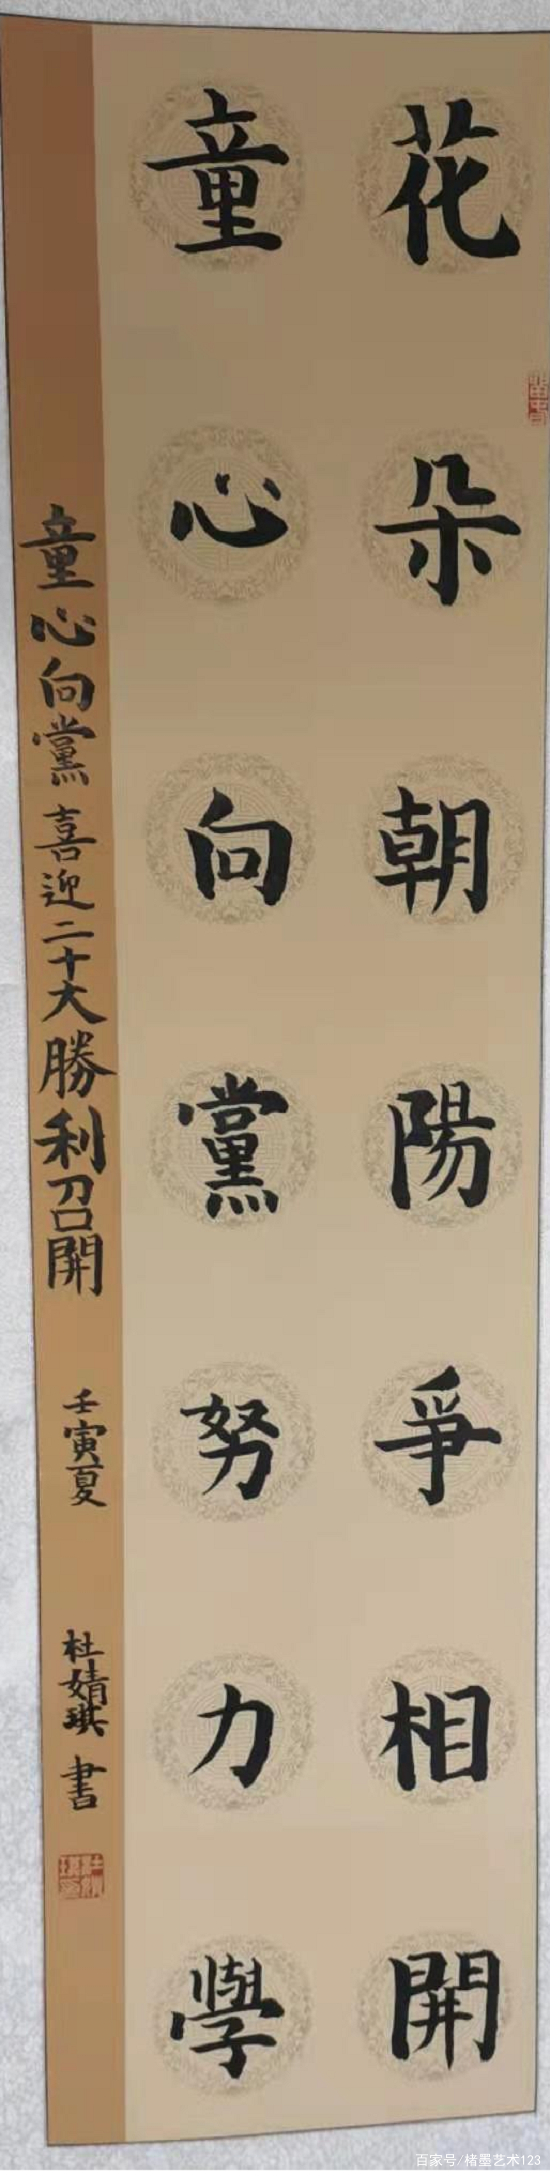 花朵朝陽爭相開
童心向黨努力學
童心向黨喜迎二十大勝利召開
壬寅夏
杜婧琪書
百家号/楮墨艺术123